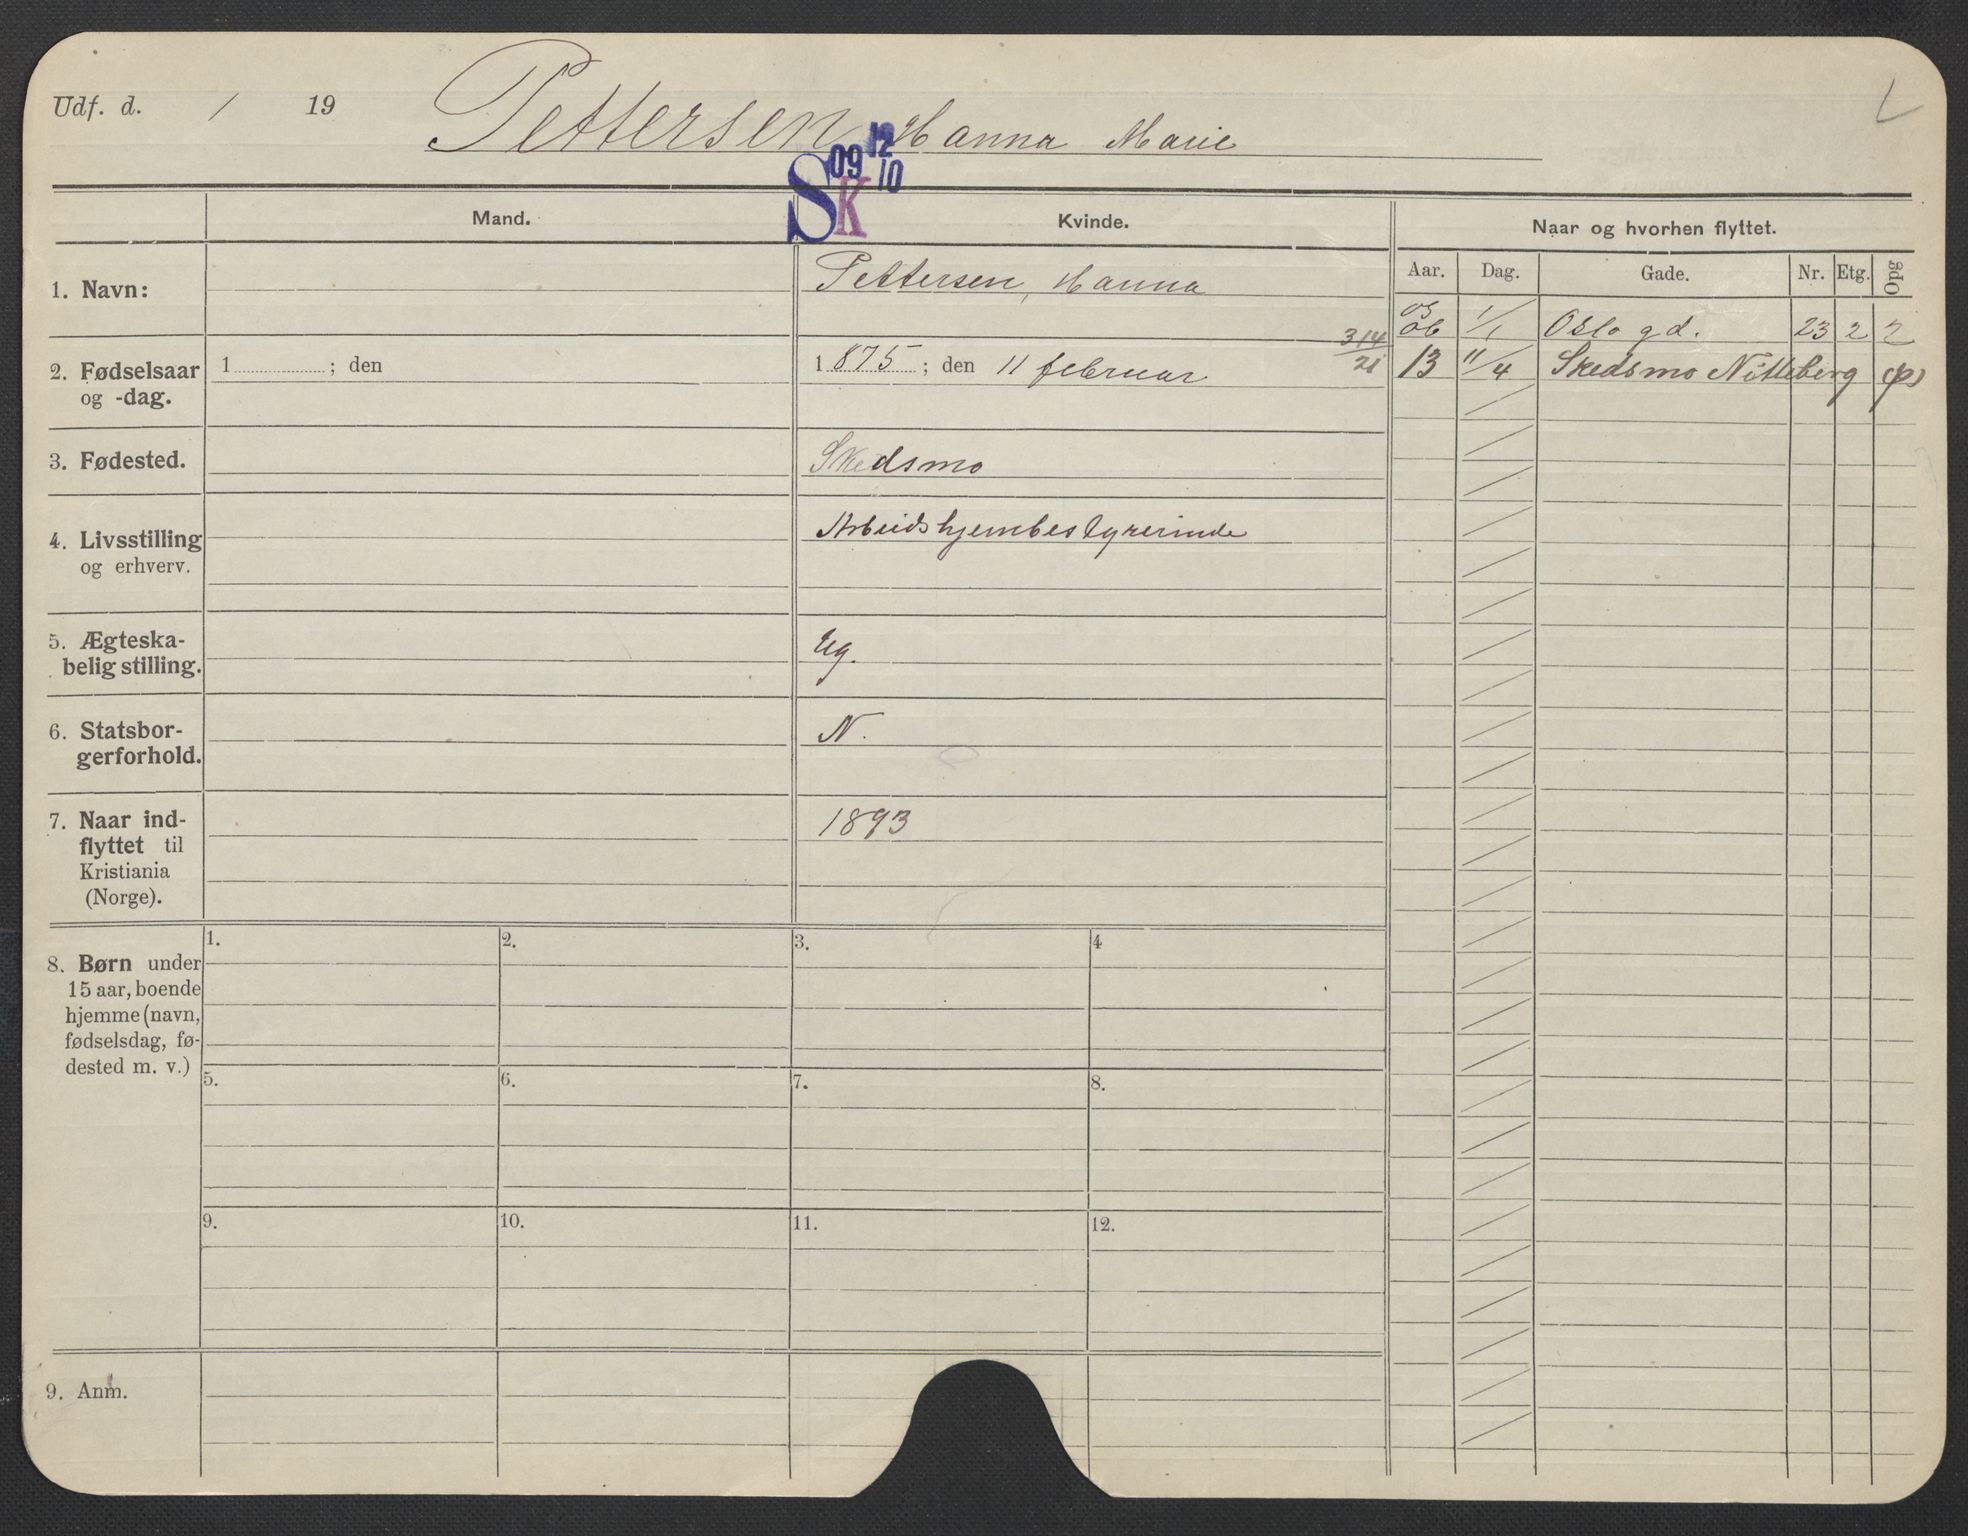 Udf. d. / 19 Pettersen, Hanna Marie
12
09 10
SK
Mand. Kvinde. Naar og hvorhen flyttet.
Aar. Dag. Gade. Nr. Etg. Opg
1. Navn: Pettersen, Hanna
05
06 1/1 Oslo gd. 23 2 2
314/21 13 11/4 Skedsmo Nitteberg (p)
2. Fødselsaar og -dag. 1 ; den 1875 ; den 11 februar
3. Fødested. Skedsmo
4. Livsstilling og erhverv. Arbeidshjembestyrerinde
5. Ægteska-
belig stilling. Ug.
6. Statsbor-
gerforhold. N.
7. Naar ind-
flyttet til
Kristiania
(Norge). 1893
8. Børn under
15 aar, boende
hjemme (navn,
fødselsdag, fø-
dested m. v.)
1. 2. 3. 4
5. 6. 7. 8.
9. 10. 11. 12.
9. Anm.